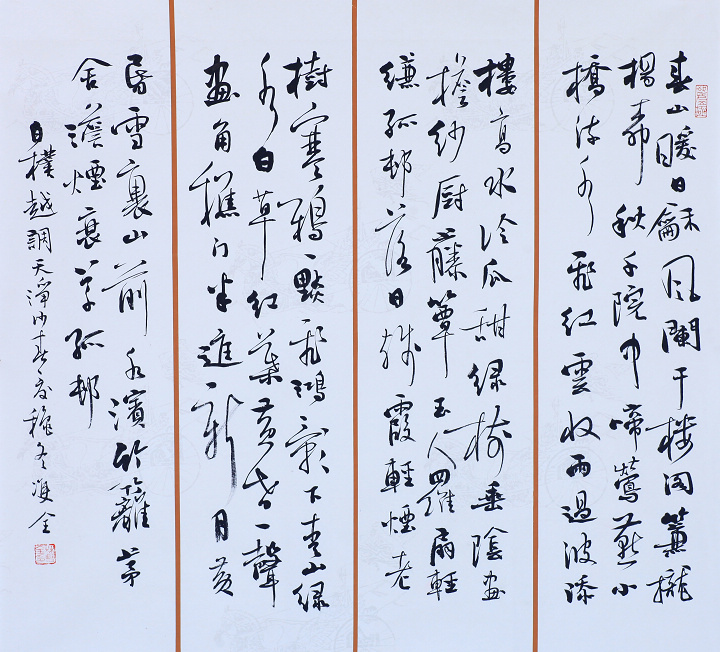 春山暖日龢風闌干樓閣簾櫳
楊柳秋千院中啼鶯燕小
橋流水飛紅雲收雨過波添
樓高水冷瓜甜綠樹垂陰畫
檐紗厨藤簟玉人羅扇輕
縑孤邨落日殘霞輕煙老
樹寒鴉一點飛鴻影下青山綠
水白草紅葉黃花一聲
畫角樵门半進新月黃
昏雪裏山前水濱竹籬茅
舍澹煙衰草孤邨
白樸越調天淨沙春夏穐冬全